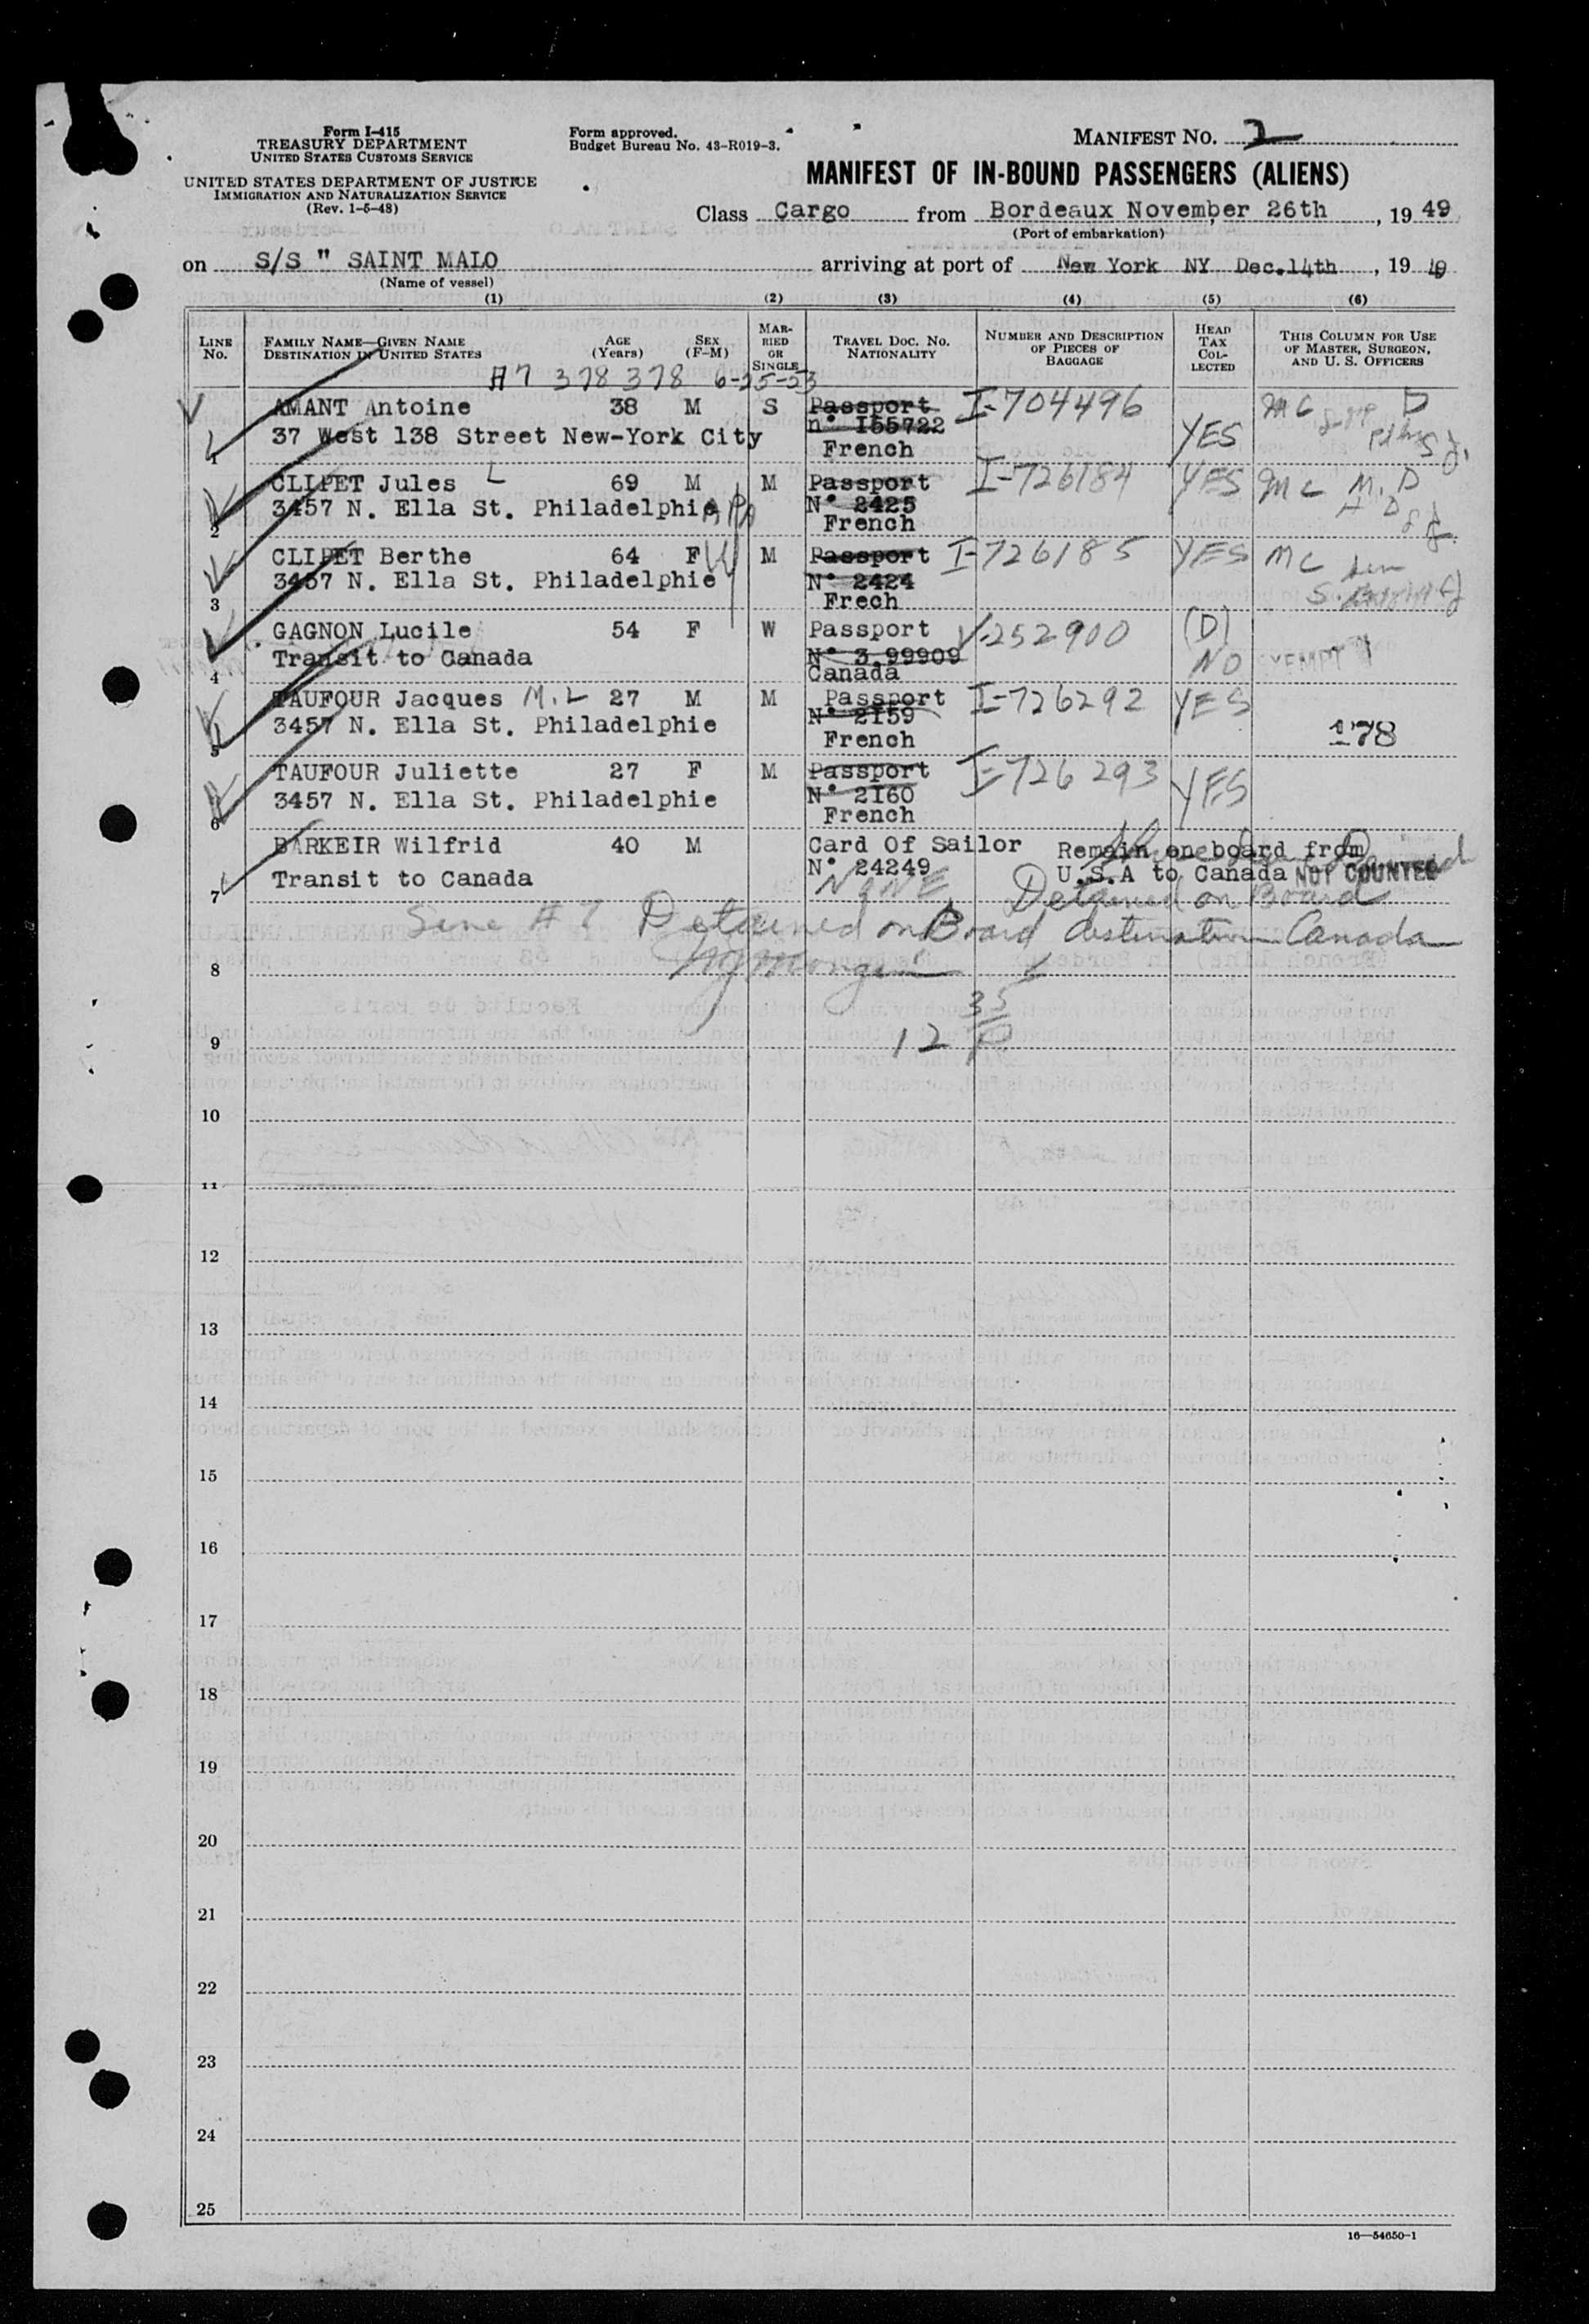 Form I-415
TREASURY DEPARTMENT
UNITED STATES CUSTOMS SERVICE
UNITED STATES DEPARTMENT OF JUSTICE
IMMIGRATION AND NATURALIZATION SERVICE
(Rev. 1-5-48)
Form approved.
Budget Bureau No. 43-R019-3.
MANIFEST NO. 2
MANIFEST OF IN-BOUND PASSENGERS (ALIENS)
Class Cargo from Bordeaux November 26th, 1949
(Port of embarkation)
on S/S " SAINT MALO arriving at port of New York NY Dec.14th, 1949
(Name of vessel)
(1) (2) (3) (4) (5) (6)
LINE NO. FAMILY NAME—GIVEN NAME DESTINATION IN UNITED STATES AGE (Years) SEX (F-M) MARRIED OR SINGLE TRAVEL DOC. NO. NATIONALITY NUMBER AND DESCRIPTION OF PIECES OF BAGGAGE HEAD TAX COLLECTED THIS COLUMN FOR USE OF MASTER, SURGEON, AND U. S. OFFICERS
A7 378 378 6-25-53
AMANT Antoine 38 M S Passport I-704496 MC D
37 West 138 Street New-York City n° I55722 YES
1 French
CLIPET Jules L 69 M M Passport I-726184 YES MC M.D
3457 N. Ella St. Philadelphie N° 2425
2 French
CLIPET Berthe 64 F M Passport I-726185 YES MC
3457 N. Ella St. Philadelphie N° 2424
3 Frech
GAGNON Lucile 54 F W Passport V-252900 (D)
Transit to Canada N° 3.99909 NO EXEMPT
4 Canada
TAUFOUR Jacques M.L 27 M M Passport I-726292 YES
3457 N. Ella St. Philadelphie N° 2I59
5 French 178
TAUFOUR Juliette 27 F M Passport I-726293 YES
3457 N. Ella St. Philadelphie N° 2I60
6 French
BARKEIR Wilfrid 40 M Card Of Sailor Remain on board from
Transit to Canada N° 24249 U.S.A to Canada NOT COUNTED
7 NONE Detained on Board
Line # 7 Detained on Board destination Canada
8
35
9 12
10
11
12
13
14
15
16
17
18
19
20
21
22
23
24
25
16—54650-1